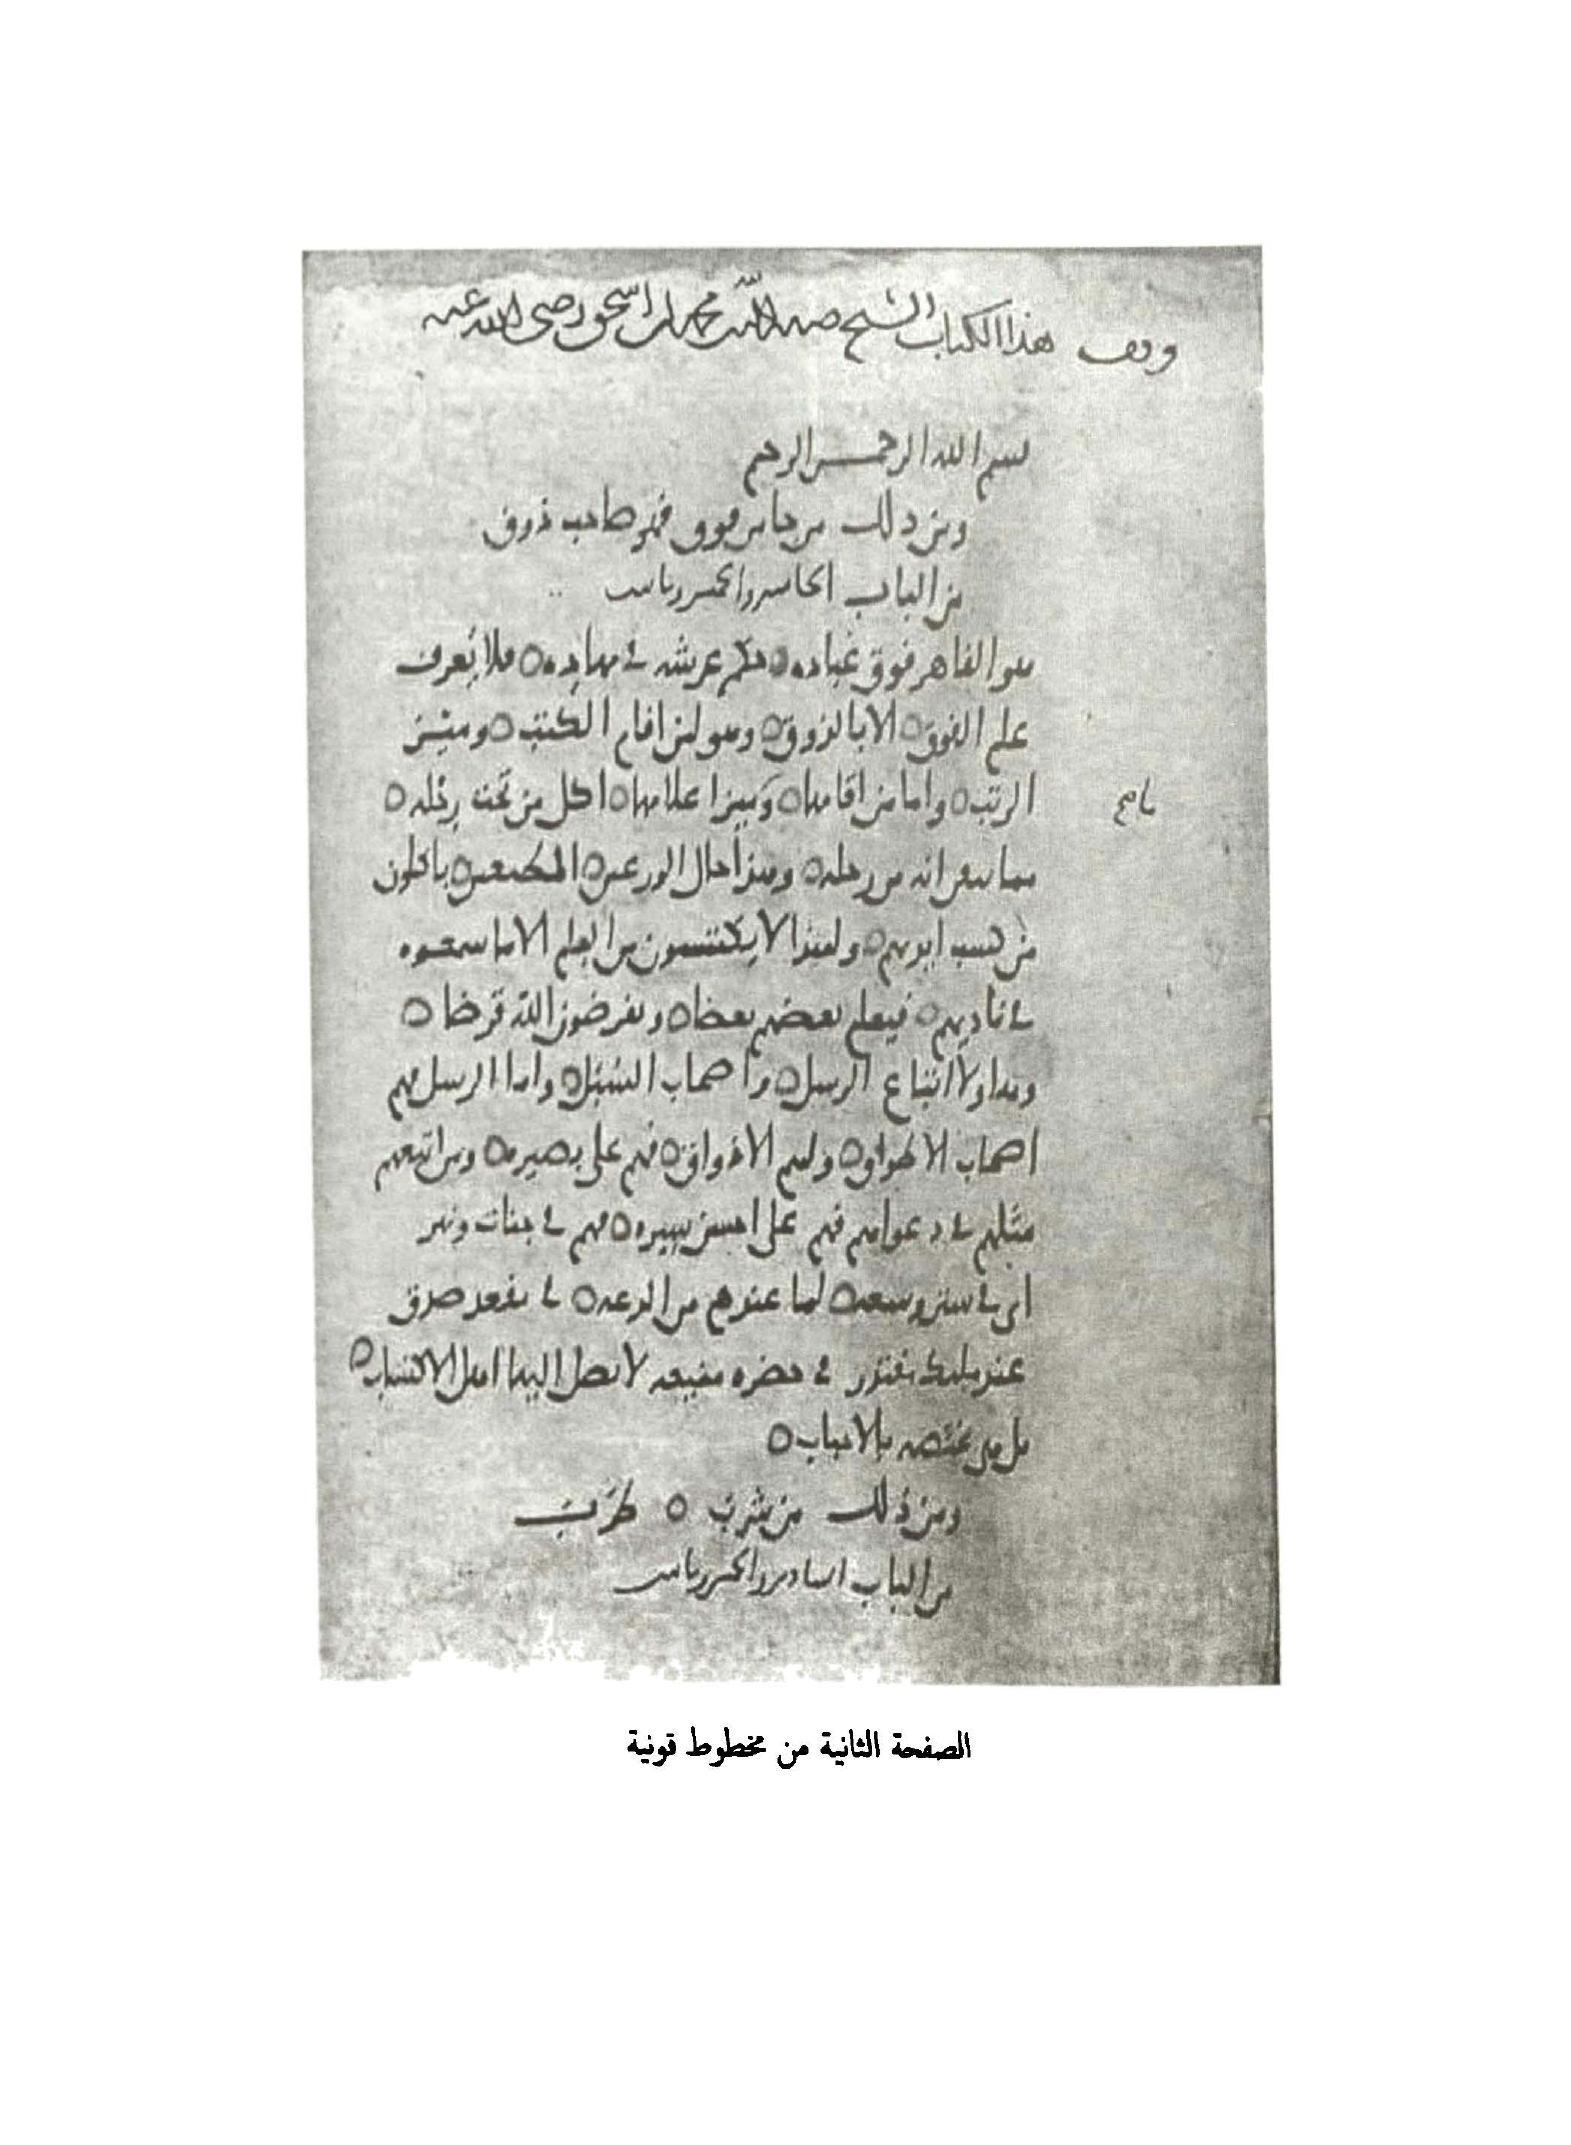 وقف هذا الكتاب الشيخ صدر الدين محمد بن اسحق رضي الله عنه
بسم الله الرحمن الرحيم
ومن ذلك من جا من فوق فهو صاحب ذوق
من الباب الخامس والخمسين
هو القاهر فوق عباده ه حكم عرشه في مهاده ه فلا يعرف
علم الفوق ه الا بالذوق ه وهو لمن اقام الكتب ه وميز
الرتب ه واما من اقامها ه وميز اعلامها ه اكل من تحت رجله ه
ناصح
مما سعى انه من رجله ه وهذا حال الورعين ه ياكلون
من كسب ايديهم ه ولهذا لا يكتسبون من العلم الا ما سمعوه
في ناديهم ه فيعلم بعضهم بعضا ه ويقرضون الله قرضا ه
وهاولا اتباع الرسل ه واصحاب السبل ه واما الرسل فهم
اصحاب الاطواق ه ولهم الاذواق ه فهم على بصيره ه ومن اتبعهم
مثلهم في دعواهم فهم على احسن سيره ه فهم في جنات ونهر
اي في ستر وسعه ه لما عندهم من الدعه ه في مقعد صدق
عند مليك مقتدر في حضره منيعه لا تصل اليها اهل الاكتساب ه
بل هي مختصه بالاحباب ه
ومن ذلك من شرب ه طرب
من الباب السادس والخمسين
الصفحة الثانية من مخطوط قونية